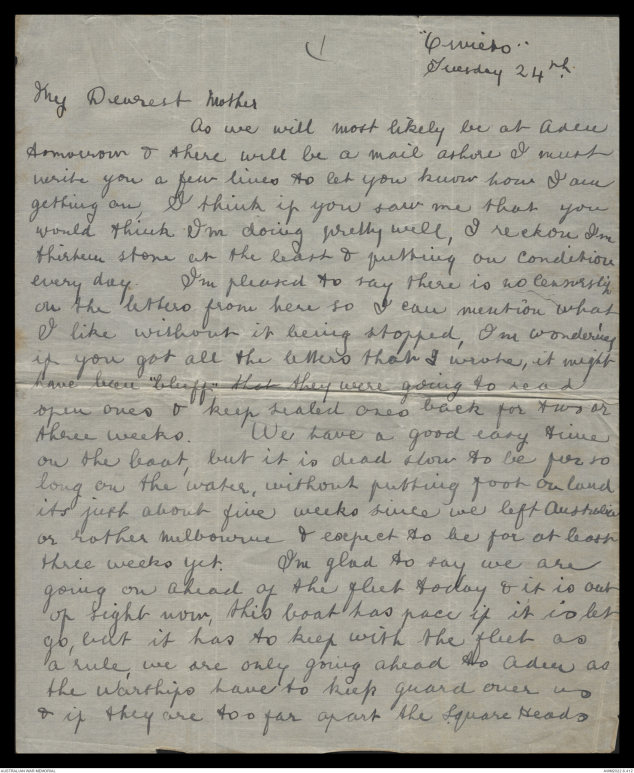 1
"Orvieto"
Tuesday 24th.
My Dearest Mother
As we will most likely be at Aden
tomorrow & there will be a mail ashore I must
write you a few lines to let you know how I am
getting on, I think if you saw me that you
would think I'm doing pretty well, I reckon I'm
thirteen stone at the least & putting on condition
every day. I'm pleased to say there is no censorship
on the letters from here so I can mention what
I like without it being stopped, I'm wondering
if you got all the letters that I wrote, it might
have been "bluff" that they were going to read
open ones & keep sealed ones back for two or
three weeks. We have a good easy time
on the boat, but it is dead slow to be for so
long on the water, without putting foot on land
its just about five weeks since we left Australia
or rather Melbourne & expect to be for at least
three weeks yet. I'm glad to say we are
going on ahead of the fleet today & it is out
of sight now, this boat has pace if it is let
go, but it has to keep with the fleet as
a rule, we are only going ahead to Aden as
the warships have to keep guard over us
& if they are too far apart the Square Heads
AUSTRALIAN WAR MEMORIAL